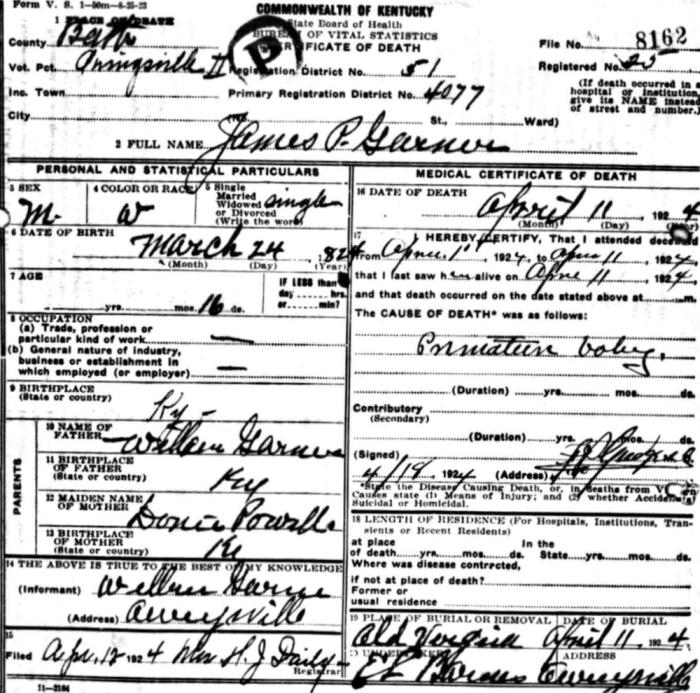 Form V. S. 1-50m-8-25-23
COMMONWEALTH OF KENTUCKY
State Board of Health
BUREAU OF VITAL STATISTICS
CERTIFICATE OF DEATH
1 PLACE OF DEATH
County Bath
File No. 8162
Vot. Pct. II
Registration District No. 51
Registered No. 25
Inc. Town
Primary Registration District No. 4077
(If death occurred in a
hospital or institution,
give its NAME instead
of street and number.)
City (No. St., Ward)
2 FULL NAME James P. Garner
PERSONAL AND STATISTICAL PARTICULARS
3 SEX M.
4 COLOR OR RACE W
5 Single
Married
Widowed
or Divorced
(Write the word)
single
6 DATE OF BIRTH March 24
(Month) (Day) (Year)
7 AGE yrs. mos. 16 ds.
IF LESS than
day hrs.
or min?
8 OCCUPATION
(a) Trade, profession or
particular kind of work —
(b) General nature of industry,
business or establishment in
which employed (or employer) —
9 BIRTHPLACE
(State or country) Ky-
PARENTS
10 NAME OF
FATHER William Garner
11 BIRTHPLACE
OF FATHER
(State or country) Ky
12 MAIDEN NAME
OF MOTHER Powell
13 BIRTHPLACE
OF MOTHER
(State or country) Ky
14 THE ABOVE IS TRUE TO THE BEST OF MY KNOWLEDGE
(Informant)
(Address)
15
Filed Apr. 12 1924 Mrs H. J. Daily
Registrar
11-3184
MEDICAL CERTIFICATE OF DEATH
16 DATE OF DEATH April 11 1924
(Month) (Day) (Year)
17 I HEREBY CERTIFY, That I attended deceased
from 1924, to 11 1924
that I last saw h alive on 11 1924
and that death occurred on the date stated above at m.
The CAUSE OF DEATH* was as follows:
(Duration) yrs. mos. ds.
Contributory
(Secondary)
(Duration) yrs. mos. ds.
(Signed)
4/18 1924 (Address)
*State the Disease Causing Death, or, in deaths from
Causes state (1) Means of Injury; and (2) whether
Suicidal or Homicidal.
18 LENGTH OF RESIDENCE (For Hospitals, Institutions, Tran-
sients or Recent Residents)
at place In the
of death yrs. mos. ds. State yrs. mos. ds.
Where was disease contracted,
if not at place of death?
Former or
usual residence
19 PLACE OF BURIAL OR REMOVAL DATE OF BURIAL
April 11 1924
20 UNDERTAKER ADDRESS